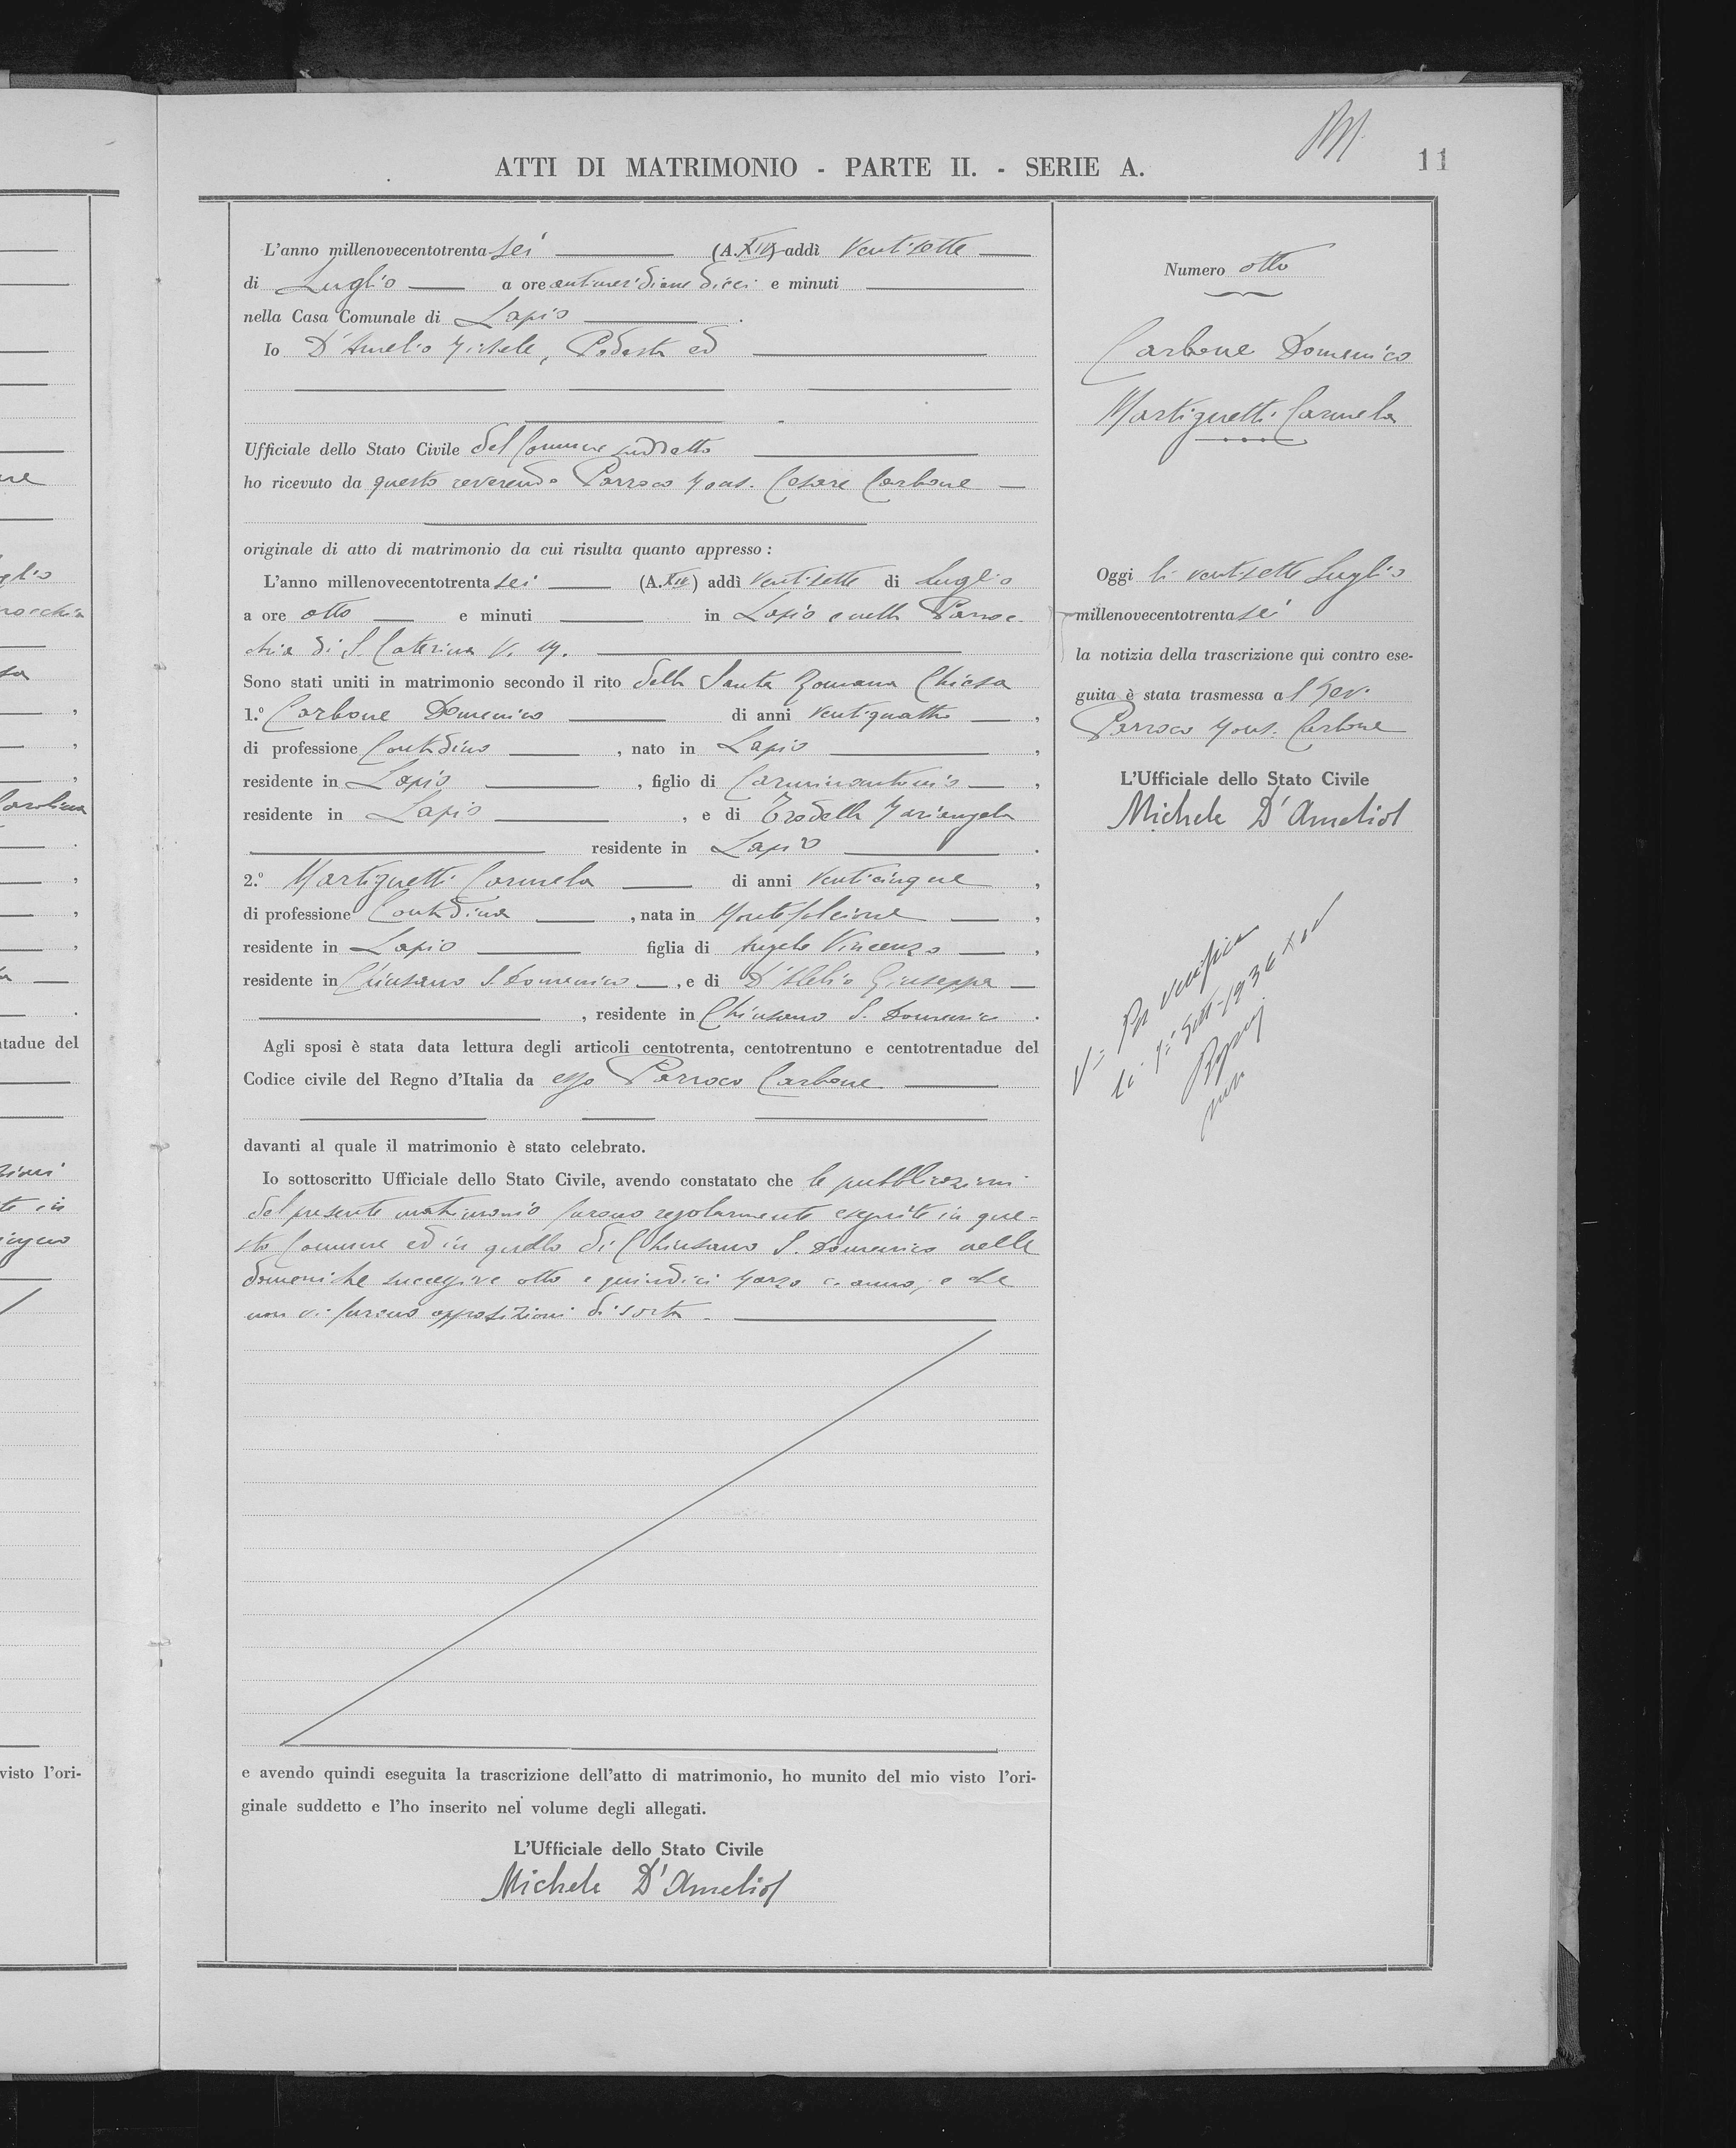 11
ATTI DI MATRIMONIO - PARTE II. - SERIE A.
L'anno millenovecentotrenta sei (A. XIV) addì ventisette
di Luglio a ore antimeridiane dieci e minuti
nella Casa Comunale di Lapio
Io D'Amelio Michele, Podestà ed
Ufficiale dello Stato Civile del Comune suddetto
ho ricevuto da questo reverendo Parroco Mons. Cesare Carbone
originale di atto di matrimonio da cui risulta quanto appresso :
L'anno millenovecentotrenta sei (A. XIV) addì ventisette di Luglio
a ore otto e minuti in Lapio e nella Parroc-
chia di S. Caterina V. M.
Sono stati uniti in matrimonio secondo il rito della Santa Romana Chiesa
1.º Carbone Domenico di anni ventiquattro ,
di professione Contadino , nato in Lapio ,
residente in Lapio , figlio di Carminantonio ,
residente in Lapio , e di Trodella Mariangela
residente in Lapio .
2.º Martignetti Carmela di anni venticinque ,
di professione Contadina , nata in Montefalcione ,
residente in Lapio figlia di Angelo Vincenzo ,
residente in Chiusano S. Domenico , e di Giuseppa
, residente in Chiusano S. Domenico .
Agli sposi è stata data lettura degli articoli centotrenta, centotrentuno e centotrentadue del
Codice civile del Regno d'Italia da esso Parroco Carbone
davanti al quale il matrimonio è stato celebrato.
Io sottoscritto Ufficiale dello Stato Civile, avendo constatato che le pubblicazioni
del presente matrimonio furono regolarmente eseguite in que-
sto Comune ed in quello di Chiusano S. Domenico nelle
domeniche successive otto e quindici Marzo c. anno, e che
non vi furono opposizioni di sorta.
e avendo quindi eseguita la trascrizione dell'atto di matrimonio, ho munito del mio visto l'ori-
ginale suddetto e l'ho inserito nel volume degli allegati.
L'Ufficiale dello Stato Civile
Michele D'Amelio
Numero otto
Carbone Domenico
Martignetti Carmela
Oggi li ventisette Luglio
millenovecentotrenta sei
la notizia della trascrizione qui contro ese-
guita è stata trasmessa al Rev.
Parroco Mons. Carbone
L'Ufficiale dello Stato Civile
Michele D'Amelio
V: Per verifica
glio
rocchia
Carolina
tadue del
zioni
te in
visto l'ori-